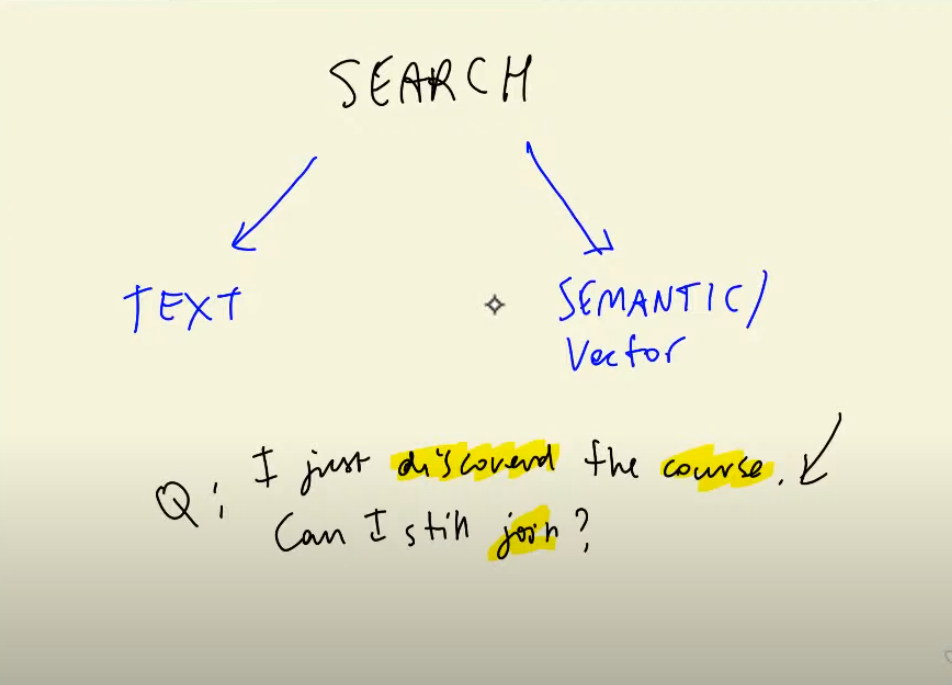 SEARCH
TEXT
SEMANTIC/
Vector
Q: I just discoverd the course.
Can I still join?